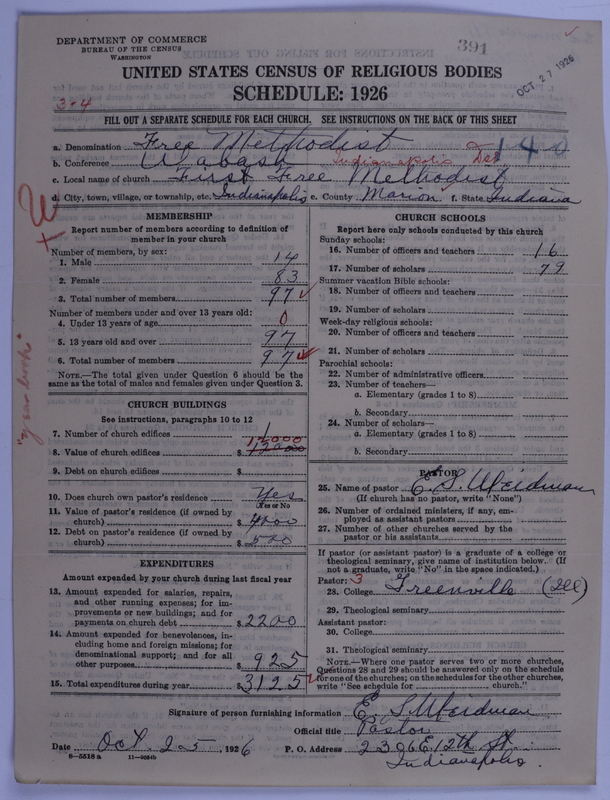 DEPARTMENT OF COMMERCE
BUREAU OF THE CENSUS
WASHINGTON
391
OCT 27 1926
UNITED STATES CENSUS OF RELIGIOUS BODIES
SCHEDULE: 1926
3-4
FILL OUT A SEPARATE SCHEDULE FOR EACH CHURCH. SEE INSTRUCTIONS ON THE BACK OF THIS SHEET
a. Denomination Free Methodist 140
b. Conference Wabash Indianapolis Dist
c. Local name of church First Free Methodist
d. City, town, village, or township, etc. Indianapolis e. County Marion f. State Indiana
"year book"
MEMBERSHIP
Report number of members according to definition of member in your church
Number of members, by sex:
1. Male 14
2. Female 83
3. Total number of members 97
Number of members under and over 13 years old:
4. Under 13 years of age 0
5. 13 years old and over 97
6. Total number of members 97
NOTE.—The total given under Question 6 should be the
same as the total of males and females given under Question 3.
CHURCH BUILDINGS
See instructions, paragraphs 10 to 12
7. Number of church edifices 1
12000
8. Value of church edifices $ 12000
9. Debt on church edifices $
10. Does church own pastor's residence Yes
Yes or No
11. Value of pastor's residence (if owned by
church) $ 4000
12. Debt on pastor's residence (if owned by
church) $ 500
EXPENDITURES
Amount expended by your church during last fiscal year
13. Amount expended for salaries, repairs,
and other running expenses; for im-
provements or new buildings; and for
payments on church debt $ 2200
14. Amount expended for benevolences, in-
cluding home and foreign missions; for
denominational support; and for all
other purposes $ 925
15. Total expenditures during year $ 3125
CHURCH SCHOOLS
Report here only schools conducted by this church
Sunday schools:
16. Number of officers and teachers 16
17. Number of scholars 79
Summer vacation Bible schools:
18. Number of officers and teachers
19. Number of scholars
Week-day religious schools:
20. Number of officers and teachers
21. Number of scholars
Parochial schools:
22. Number of administrative officers
23. Number of teachers—
a. Elementary (grades 1 to 8)
b. Secondary
24. Number of scholars—
a. Elementary (grades 1 to 8)
b. Secondary
PASTOR
25. Name of pastor E. S. Weidman
(If church has no pastor, write "None")
26. Number of ordained ministers, if any, em-
ployed as assistant pastors
27. Number of other churches served by the
pastor or his assistants
If pastor (or assistant pastor) is a graduate of a college or
theological seminary, give name of institution below. (If
not a graduate, write "No" in the space indicated.)
Pastor: 3
28. College Greenville (Ill)
29. Theological seminary
Assistant pastor:
30. College
31. Theological seminary
NOTE.—Where one pastor serves two or more churches,
Questions 28 and 29 should be answered only on the schedule
for one of the churches; on the schedules for the other churches,
write "See schedule for church."
Signature of person furnishing information E. S. Weidman
Official title Pastor
Date Oct. 25, 1926 P. O. Address 2306 E. 12th St
Indianapolis.
8-5518 a 11-9084b